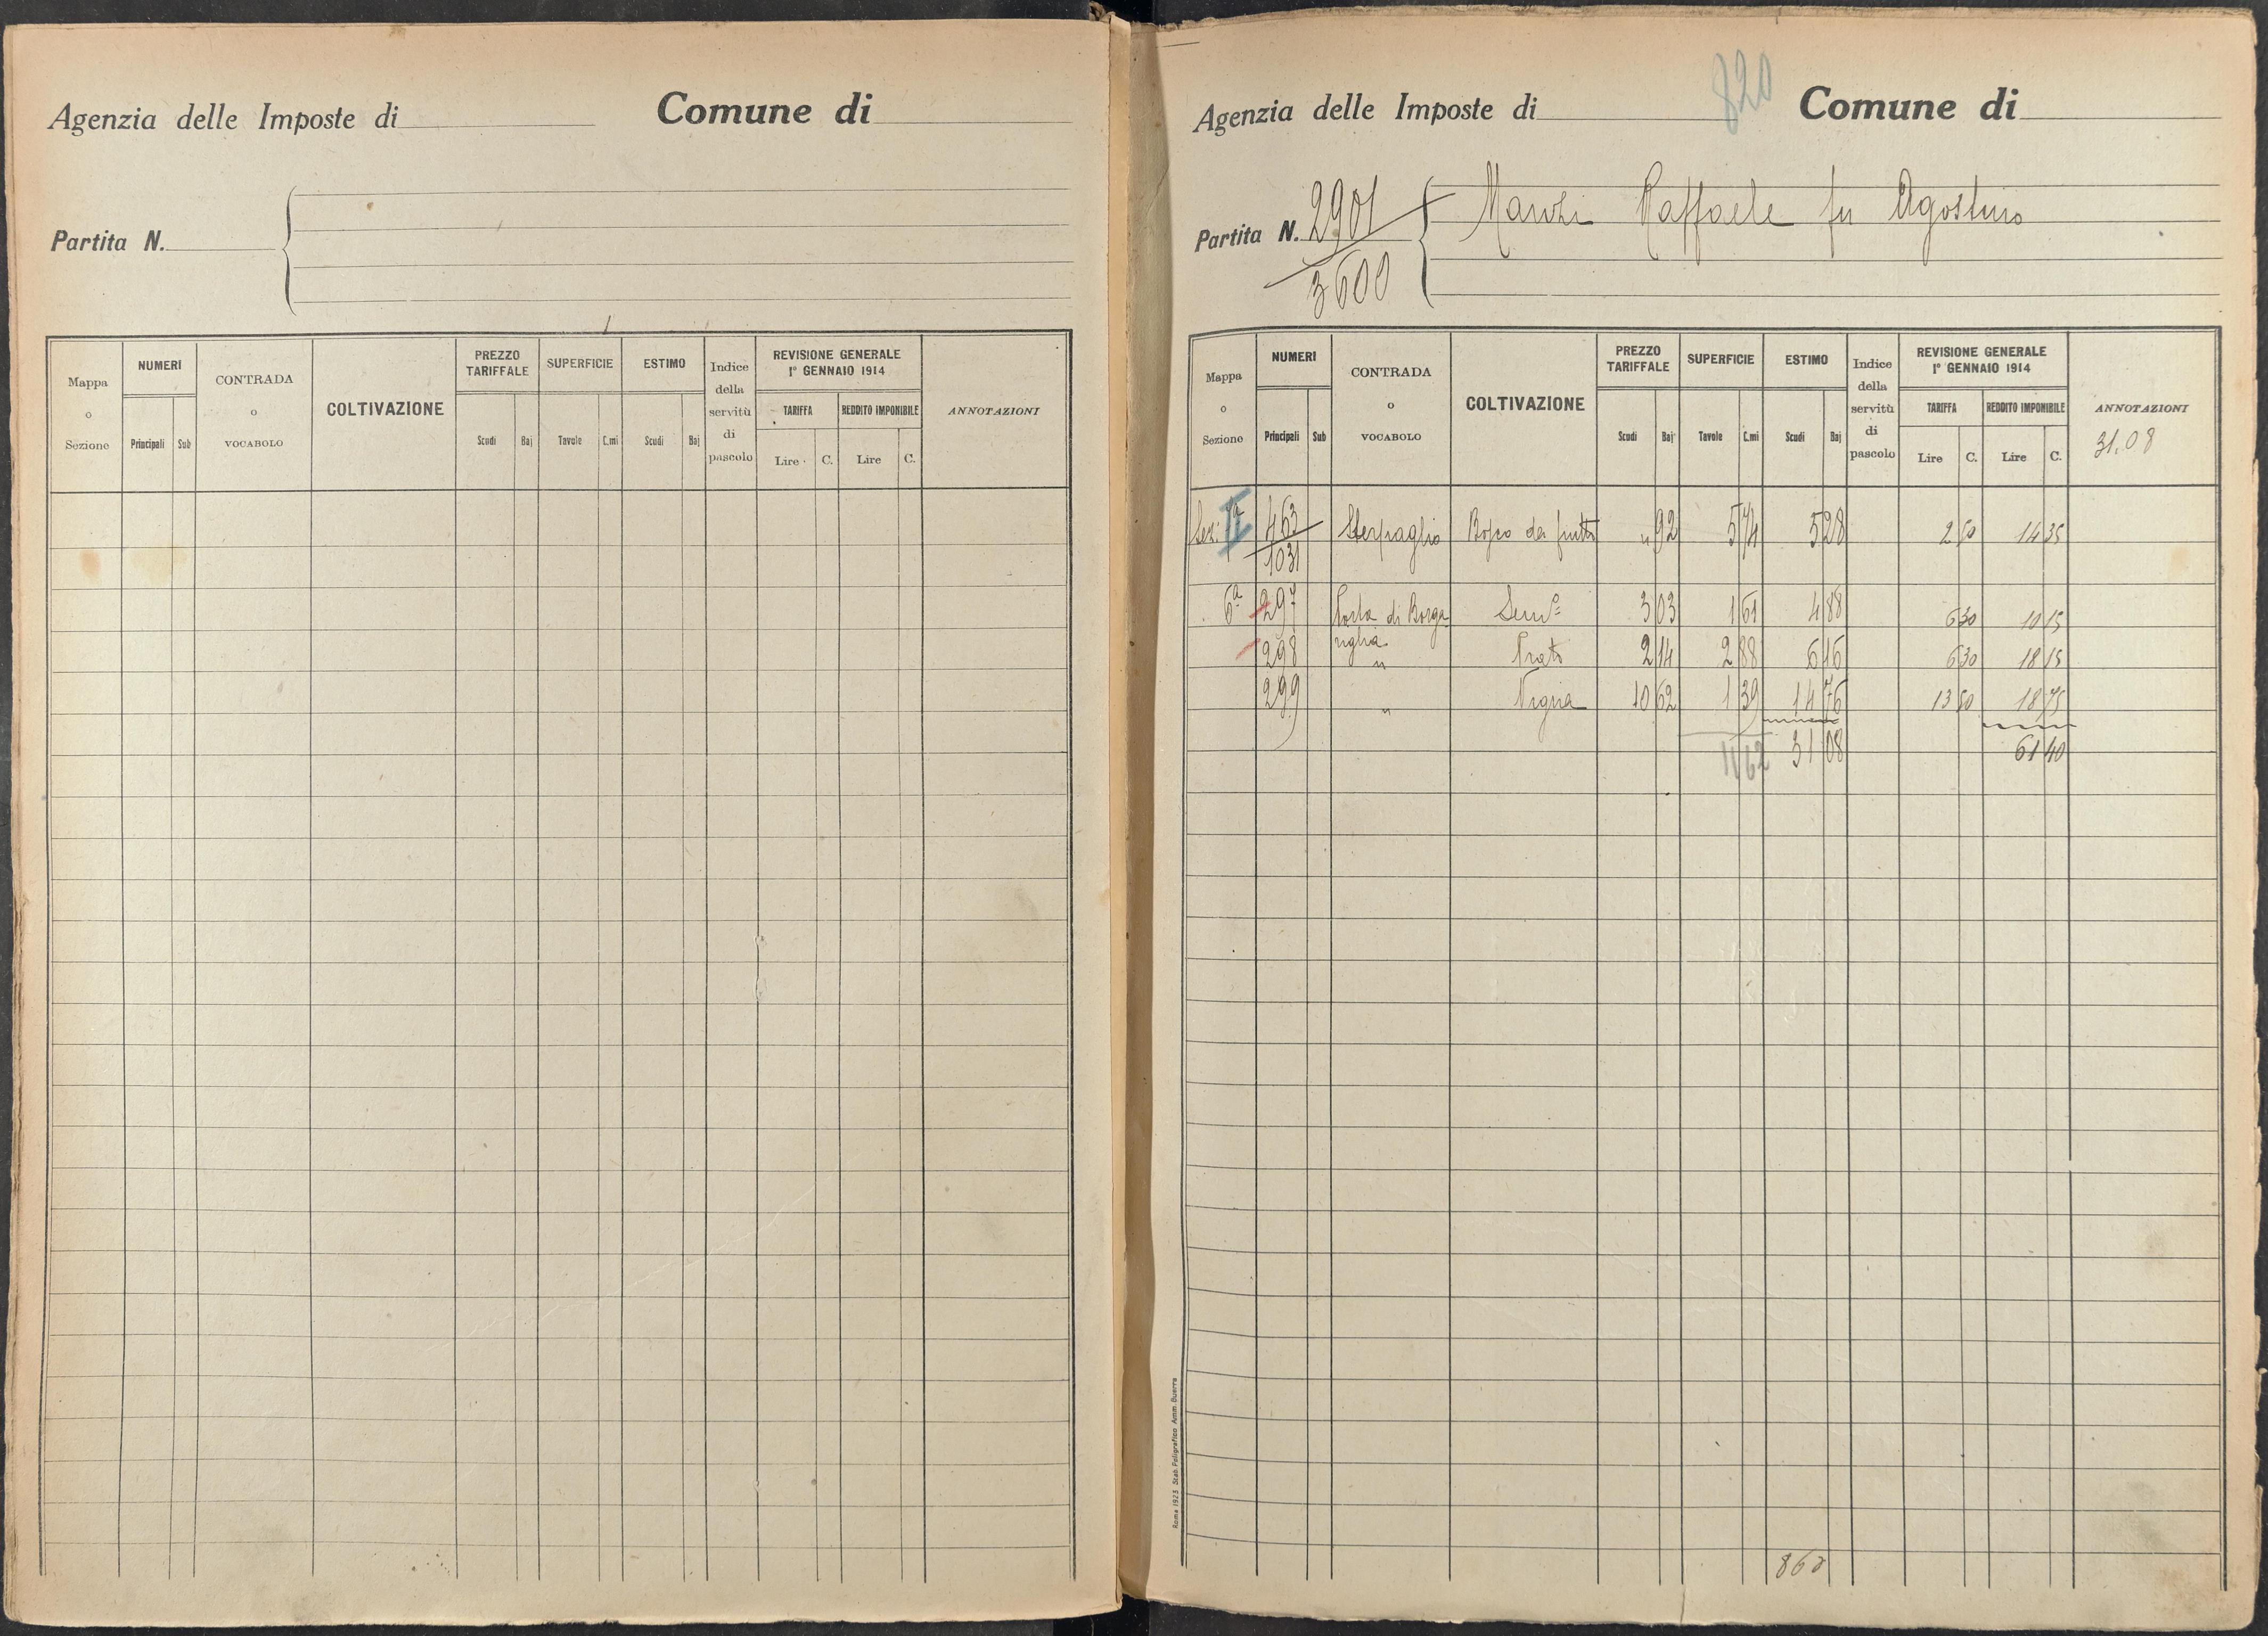 Agenzia delle Imposte di Comune di
Partita N.
Mappa o Sezione
NUMERI
Principali Sub
CONTRADA o VOCABOLO
COLTIVAZIONE
PREZZO TARIFFALE
Scudi Baj
SUPERFICIE
Tavole C.mi
ESTIMO
Scudi Baj
Indice della servitù di pascolo
REVISIONE GENERALE
1° GENNAIO 1914
TARIFFA REDDITO IMPONIBILE
Lire C. Lire C.
ANNOTAZIONI
820
Agenzia delle Imposte di Comune di
Partita N. 2901 Raffaele fu Agostino
3600
Mappa o Sezione
NUMERI
Principali Sub
CONTRADA o VOCABOLO
COLTIVAZIONE
PREZZO TARIFFALE
Scudi Baj
SUPERFICIE
Tavole C.mi
ESTIMO
Scudi Baj
Indice della servitù di pascolo
REVISIONE GENERALE
1° GENNAIO 1914
TARIFFA REDDITO IMPONIBILE
Lire C. Lire C.
ANNOTAZIONI
31.08
Sez. II 463 Sterpaglio Bosco da frutto " 92 5 74 5 28 2 50 14 35
1031
6ª 297 di Borga Semº 3 03 1 61 4 88 6 30 10 15
riglia
298 " Prato 2 14 2 88 6 16 6 30 18 15
299 " Vigna 10 62 1 39 14 76 13 50 18 75
11 62 31 08 61 40
Roma 1923 Stab. Poligrafico Amm. Guerra